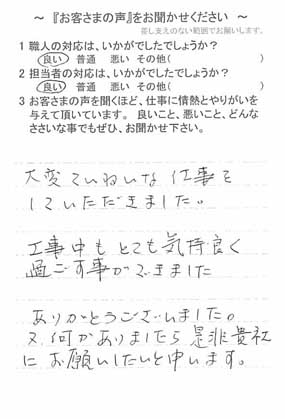 ～ 『お客さまの声』をお聞かせください ～
差し支えのない範囲でお願いします。
1 職人の対応は、いかがでしたでしょうか?
良い 普通 悪い その他( )
2 担当者の対応は、いかがでしたでしょうか?
良い 普通 悪い その他( )
3 お客さまの声を聞くほど、仕事に情熱とやりがいを
与えて頂いています。 良いこと、悪いこと、どんな
ささいな事でもぜひ、お聞かせ下さい。
大変ていねいな仕事を
していただきました。
工事中もとても気持良く
過ごす事ができました
ありがとうございました。
又何かありましたら是非貴社
にお願いしたいと思います。